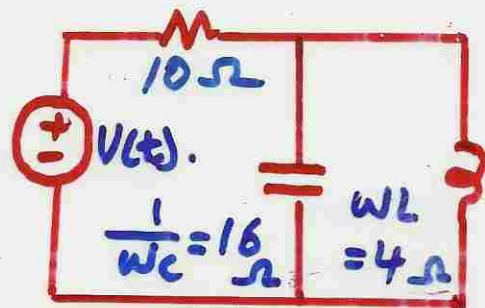 10Ω
+
-
V(t).
1/ωc = 16Ω
ωL
= 4Ω